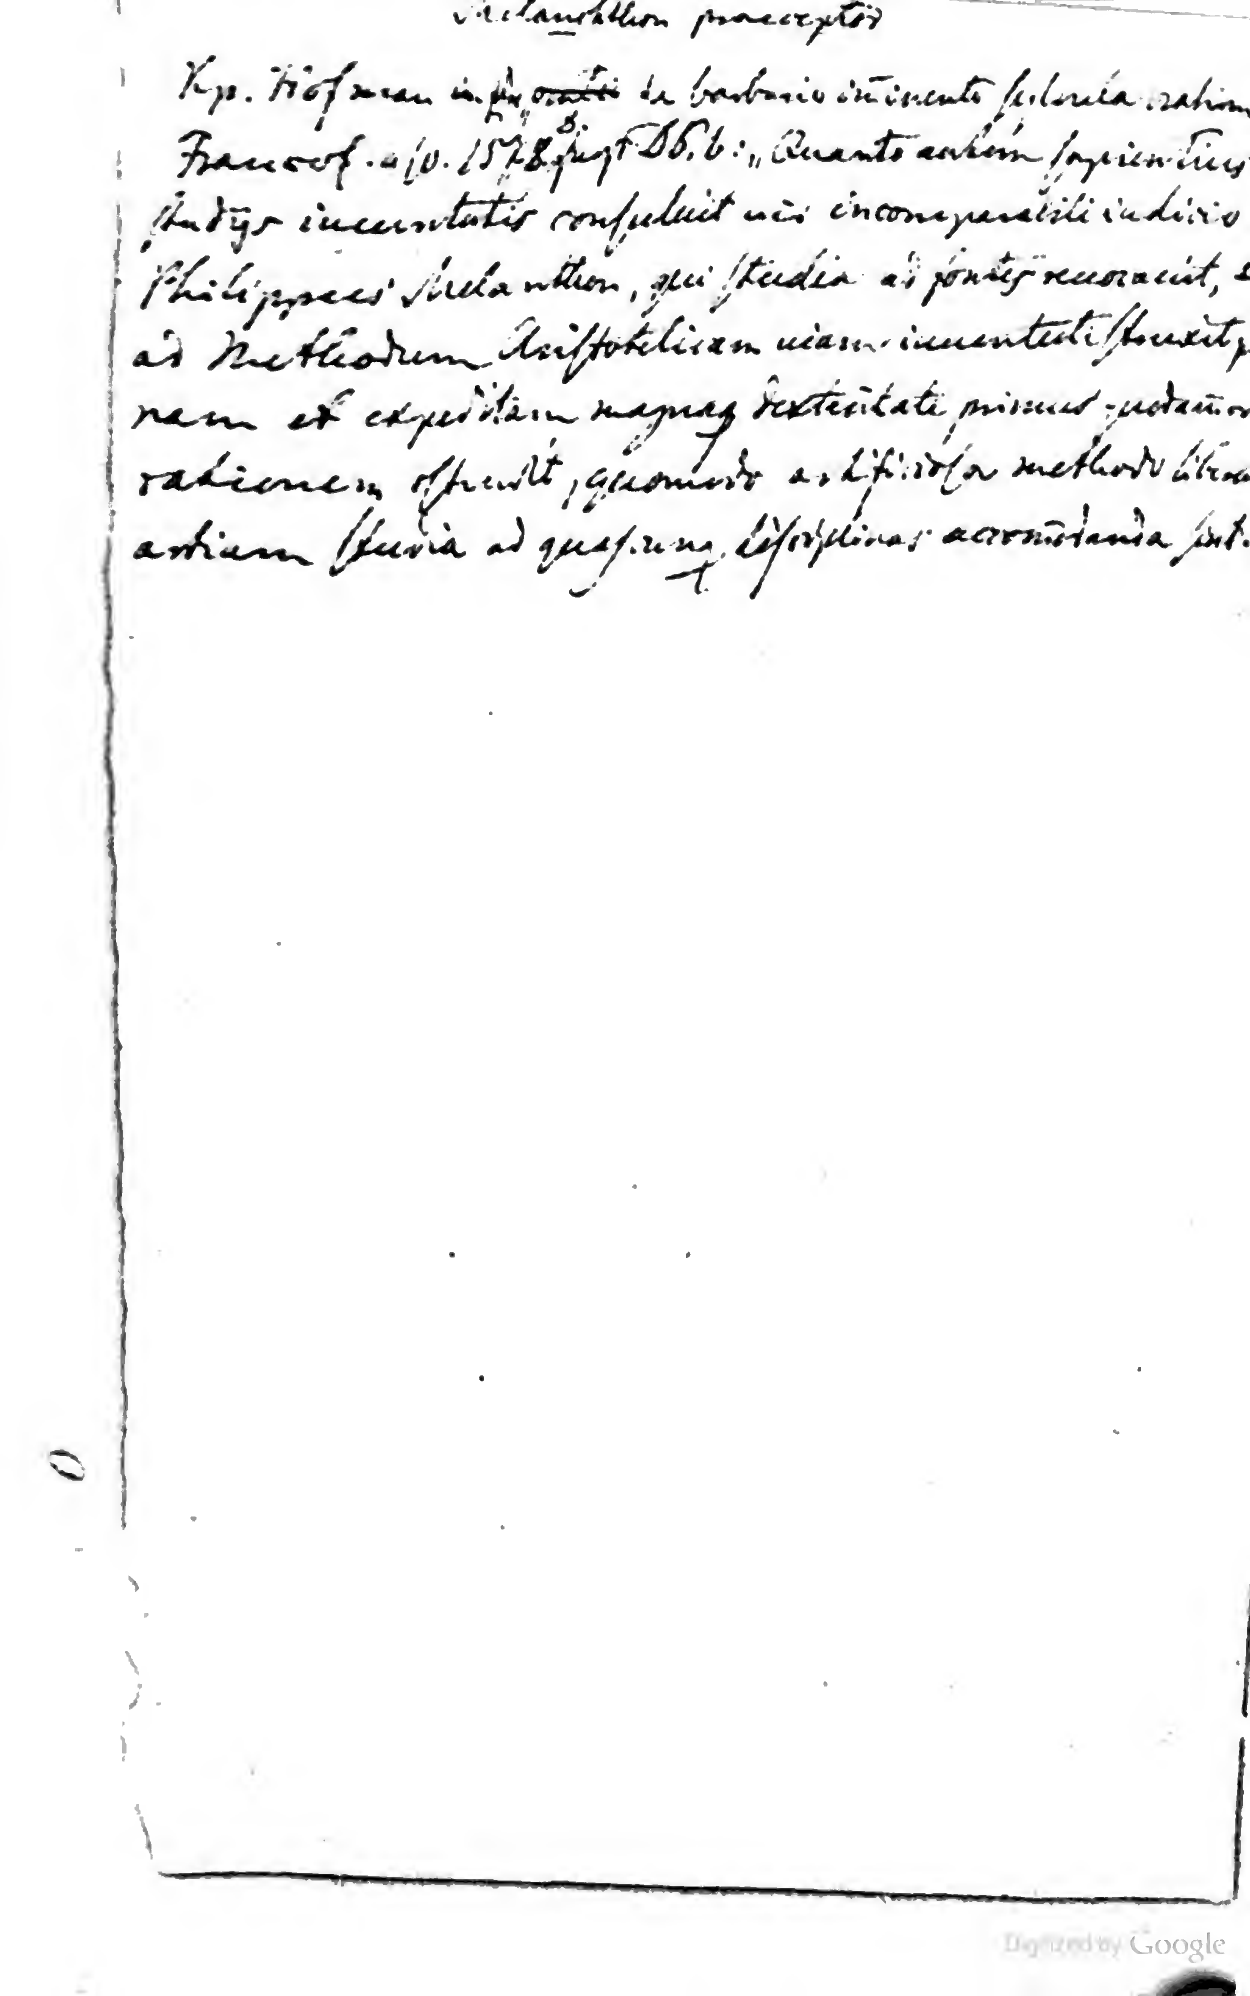 Melanchthon praeceptor
Kp. Hofman in de barbarie im̄inente
Francof. a/O. 1578. 8. D6,b: „Quanto autem sapientius
studijs iuuentutis consuluit uir incomparabili iudicio
Philippus Melanthon, qui studia ad fontes reuocauit,
ad Methodum Aristotelicam uiam iuuentuti struxit
nam et expeditam magnaq dexteritate primus quodam̄o
rationem ostendit, quomodo artificiosa methodo libera
artium studia ad quascunq disciplinas accom̄odanda sint.
Digitized by Google